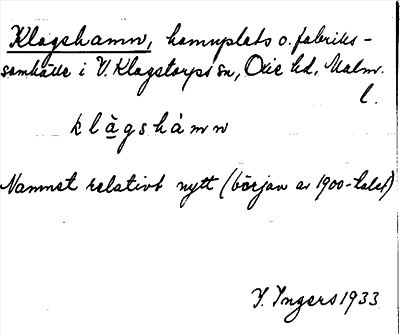 Klagshamn, hamnplats o. fabriks-
samhälle i V. Klagstorps sn, Oxie hd, Malm.
l.
klàgshámn
Namnet relativt nytt (början av 1900-talet)
I. Ingers 1933